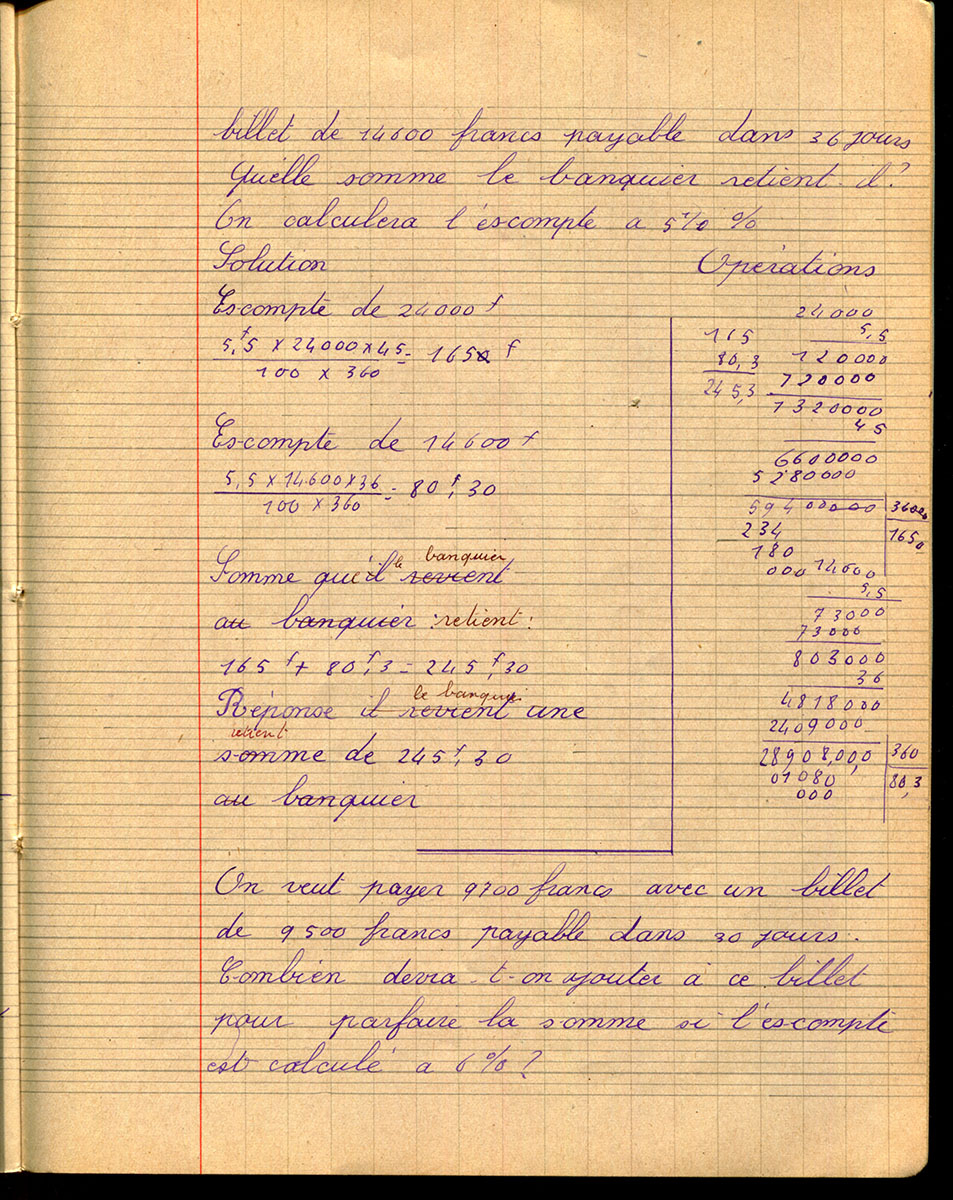 billet de 14600 francs payable dans 36 jours
Quelle somme le banquier retient-il?
On calculera l'escompte a 5½ %
Solution
Opérations
Escompte de 24000 f
5,f5 x 24000 x 45 = 1650 f
100 x 360
Escompte de 14600 f
5,5 x 14600 x 36 = 80 f, 30
100 x 360
le banquier
Somme qu'il revient
au banquier retient:
165 f + 80 f, 3 = 245 f, 30
le banquier
Réponse il revient une
retient
somme de 245 f, 30
au banquier
24000
5,5
120000
720000
1320000
45
6600000
5280000
59400000 36000
234 1650
180
000
165
80,3
245,3
14600
5,5
73000
73000
803000
36
4818000
2409000
28908,00,0 360
01080 80,3
000
On veut payer 9700 francs avec un billet
de 9500 francs payable dans 30 jours.
Combien devra-t-on ajouter à ce billet
pour parfaire la somme si l'escompte
est calculé a 6% ?